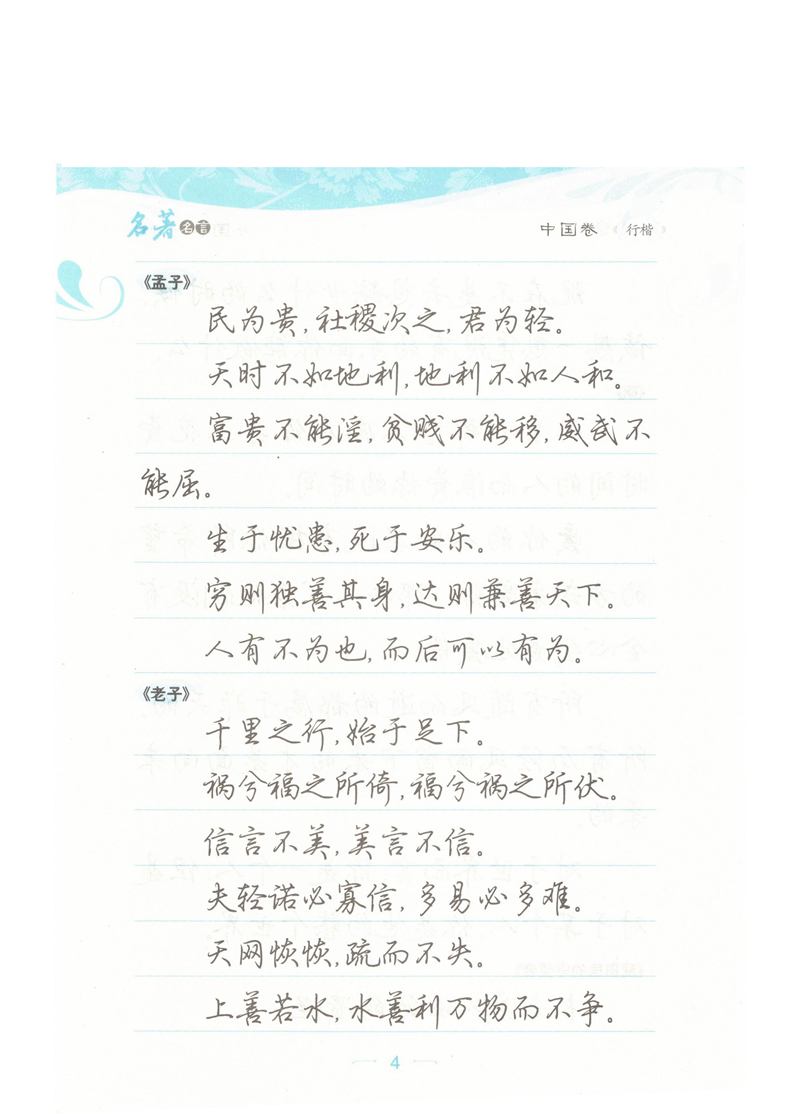 名著名言
中国卷 行楷
《孟子》
民为贵,社稷次之,君为轻。
天时不如地利,地利不如人和。
富贵不能淫,贫贱不能移,威武不
能屈。
生于忧患,死于安乐。
穷则独善其身,达则兼善天下。
人有不为也,而后可以有为。
《老子》
千里之行,始于足下。
祸兮福之所倚,福兮祸之所伏。
信言不美,美言不信。
夫轻诺必寡信,多易必多难。
天网恢恢,疏而不失。
上善若水,水善利万物而不争。
4